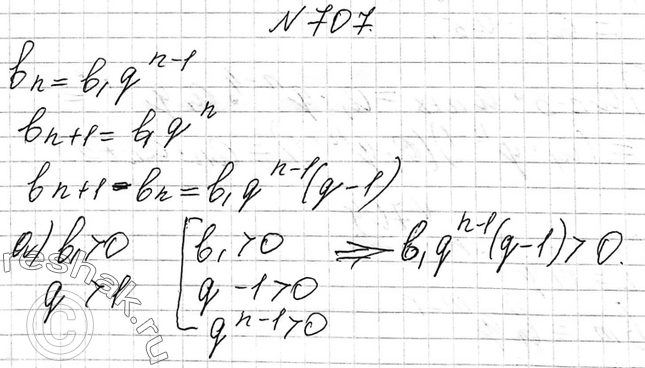 N 707.
bn = b₁ qⁿ⁻¹
bn+1 = b₁ qⁿ
bn+1 - bn = b₁ qⁿ⁻¹ (q-1)
а) b₁ > 0 [ b₁ > 0 ⇒ b₁ qⁿ⁻¹ (q-1) > 0.
q > 1 q - 1 > 0
qⁿ⁻¹ > 0
reshak.ru